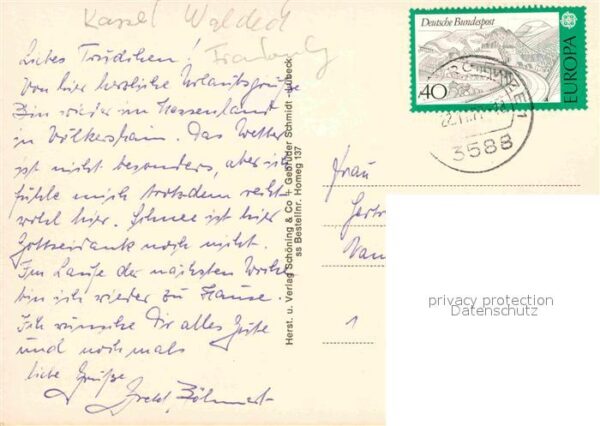 Kassel Walded
Liebes Trudchen!
Von hier herzliche Urlaubsgrüße
Bin wieder im Hessenland
in Völkershain. Das Wetter
ist nicht besonders, aber ich
fühle mich trotzdem recht
wohl hier. Schnee ist hier
Gottseidank noch nicht.
Im Laufe der nächsten Woche
bin ich wieder zu Hause.
Ich wünsche Dir alles Gute
und nochmals
liebe Grüße
Herst. u. Verlag Schöning & Co + Gebrüder Schmidt - Lübeck
ss Bestellnr. Homeg 137
Deutsche Bundespost
40
EUROPA
3588
Frau
1
privacy protection
Datenschutz